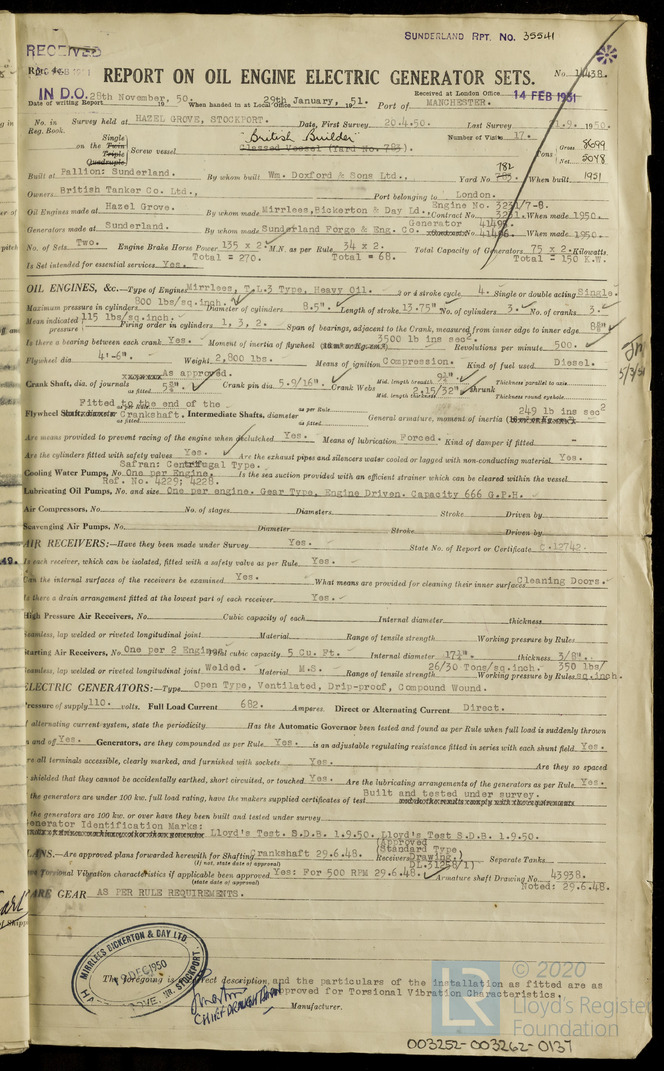 SUNDERLAND RPT. NO. 35541
RECEIVED
REPORT ON OIL ENGINE ELECTRIC GENERATOR SETS.
IN D.O.
14 FEB 1951
Date of writing Report 28th November, 19 50. When handed in at Local Office 29th January, 19 51. Port of MANCHESTER.
Received at London Office
No. in Reg. Book. Survey held at HAZEL GROVE, STOCKPORT. Date, First Survey 20.4.50. Last Survey 21.9.1950.
Number of Visits 17.
on the Single Twin Triple Quadruple Screw vessel "British Builder"
Classed Vessel (Yard No. 783)
Tons Gross 8699 Net 5048
Built at Pallion: Sunderland. By whom built Wm. Doxford & Sons Ltd., Yard No. 782 783. When built 1951
Owners British Tanker Co. Ltd., Port belonging to London.
Oil Engines made at Hazel Grove. By whom made Mirrlees, Bickerton & Day Ld. Engine No. 3231/7-8. Contract No. 3231. When made 1950.
Generators made at Sunderland. By whom made Sunderland Forge & Eng. Co. Generator No. When made 1950.
No. of Sets Two. Engine Brake Horse Power 135 x 2. M.N. as per Rule 34 x 2. Total Capacity of Generators 75 x 2. Kilowatts.
Total = 270. Total = 68. Total = 150 K.W.
Is Set intended for essential services Yes.
OIL ENGINES, &c.—Type of Engines Mirrlees, T.L.3 Type, Heavy Oil. 2 or 4 stroke cycle 4. Single or double acting Single.
Maximum pressure in cylinders 800 lbs/sq.inch. Diameter of cylinders 8.5". Length of stroke 13.75". No. of cylinders 3. No. of cranks 3.
Mean indicated pressure 115 lbs/sq.inch. Firing order in cylinders 1, 3, 2. Span of bearings, adjacent to the Crank, measured from inner edge to inner edge
Is there a bearing between each crank Yes. Moment of inertia of flywheel 3500 lb ins sec². Revolutions per minute 500.
Flywheel dia. 4'-6". Weight 2,800 lbs. Means of ignition Compression. Kind of fuel used Diesel.
Crank Shaft, dia. of journals As approved. as fitted Crank pin dia. 5.9/16" Crank Webs Mid. length breadth 9½" Mid. length thickness 2.15/32" shrunk Thickness parallel to axis Thickness round eyehole
Fitted to the end of the
Flywheel Shaft, diameter Crankshaft. Intermediate Shafts, diameter as per Rule as fitted General armature, moment of inertia 249 lb ins sec²
Are means provided to prevent racing of the engine when declutched Yes. Means of lubrication Forced. Kind of damper if fitted -
Are the cylinders fitted with safety valves Yes. Are the exhaust pipes and silencers water cooled or lagged with non-conducting material Yes.
Safran: Centrifugal Type.
Cooling Water Pumps, No. One per Engine. Is the sea suction provided with an efficient strainer which can be cleared within the vessel
Ref. No. 4229; 4228.
Lubricating Oil Pumps, No. and size One per engine. Gear Type, Engine Driven. Capacity 666 G.P.H.
Air Compressors, No. No. of stages Diameters Stroke Driven by
Scavenging Air Pumps, No. Diameter Stroke Driven by
AIR RECEIVERS:—Have they been made under Survey Yes. State No. of Report or Certificate C.12742.
Is each receiver, which can be isolated, fitted with a safety valve as per Rule Yes.
Can the internal surfaces of the receivers be examined Yes. What means are provided for cleaning their inner surfaces Cleaning Doors.
Is there a drain arrangement fitted at the lowest part of each receiver Yes.
High Pressure Air Receivers, No. Cubic capacity of each Internal diameter thickness
Seamless, lap welded or riveted longitudinal joint Material Range of tensile strength Working pressure by Rules
Starting Air Receivers, No. One per 2 Engines. Total cubic capacity 5 Cu. Ft. Internal diameter 17½". thickness 3/8".
Seamless, lap welded or riveted longitudinal joint Welded. Material M.S. Range of tensile strength 26/30 Tons/sq.inch. Working pressure by Rules 350 lbs/sq.inch.
ELECTRIC GENERATORS:—Type Open Type, Ventilated, Drip-proof, Compound Wound.
Pressure of supply 110. volts. Full Load Current 682. Amperes. Direct or Alternating Current Direct.
If alternating current system, state the periodicity Has the Automatic Governor been tested and found as per Rule when full load is suddenly thrown
on and off Yes. Generators, are they compounded as per Rule Yes. is an adjustable regulating resistance fitted in series with each shunt field Yes.
Are all terminals accessible, clearly marked, and furnished with sockets Yes. Are they so spaced
or shielded that they cannot be accidentally earthed, short circuited, or touched Yes. Are the lubricating arrangements of the generators as per Rule Yes.
If the generators are under 100 kw. full load rating, have the makers supplied certificates of test Built and tested under survey.
If the generators are 100 kw. or over have they been built and tested under survey
Generator Identification Marks:
Lloyd's Test. S.D.B. 1.9.50. Lloyd's Test S.D.B. 1.9.50.
PLANS.—Are approved plans forwarded herewith for Shafting Crankshaft 29.6.48. (If not, state date of approval) Receivers (Approved Standard Type Drawing.) Separate Tanks
Has Torsional Vibration characteristics if applicable been approved Yes: For 500 RPM 29.6.48. (state date of approval) DL.31258/1) Armature shaft Drawing No. 43938.
Noted: 29.6.48.
SPARE GEAR AS PER RULE REQUIREMENTS.
MIRRLEES BICKERTON & DAY LTD.
DEC 1950
HAZEL GROVE, NR. STOCKPORT.
The foregoing is a correct description, and the particulars of the installation as fitted are as approved for Torsional Vibration Characteristics.
CHIEF DRAUGHTSMAN
Manufacturer.
© 2020
Lloyd's Register
Foundation
003252-003262-0137